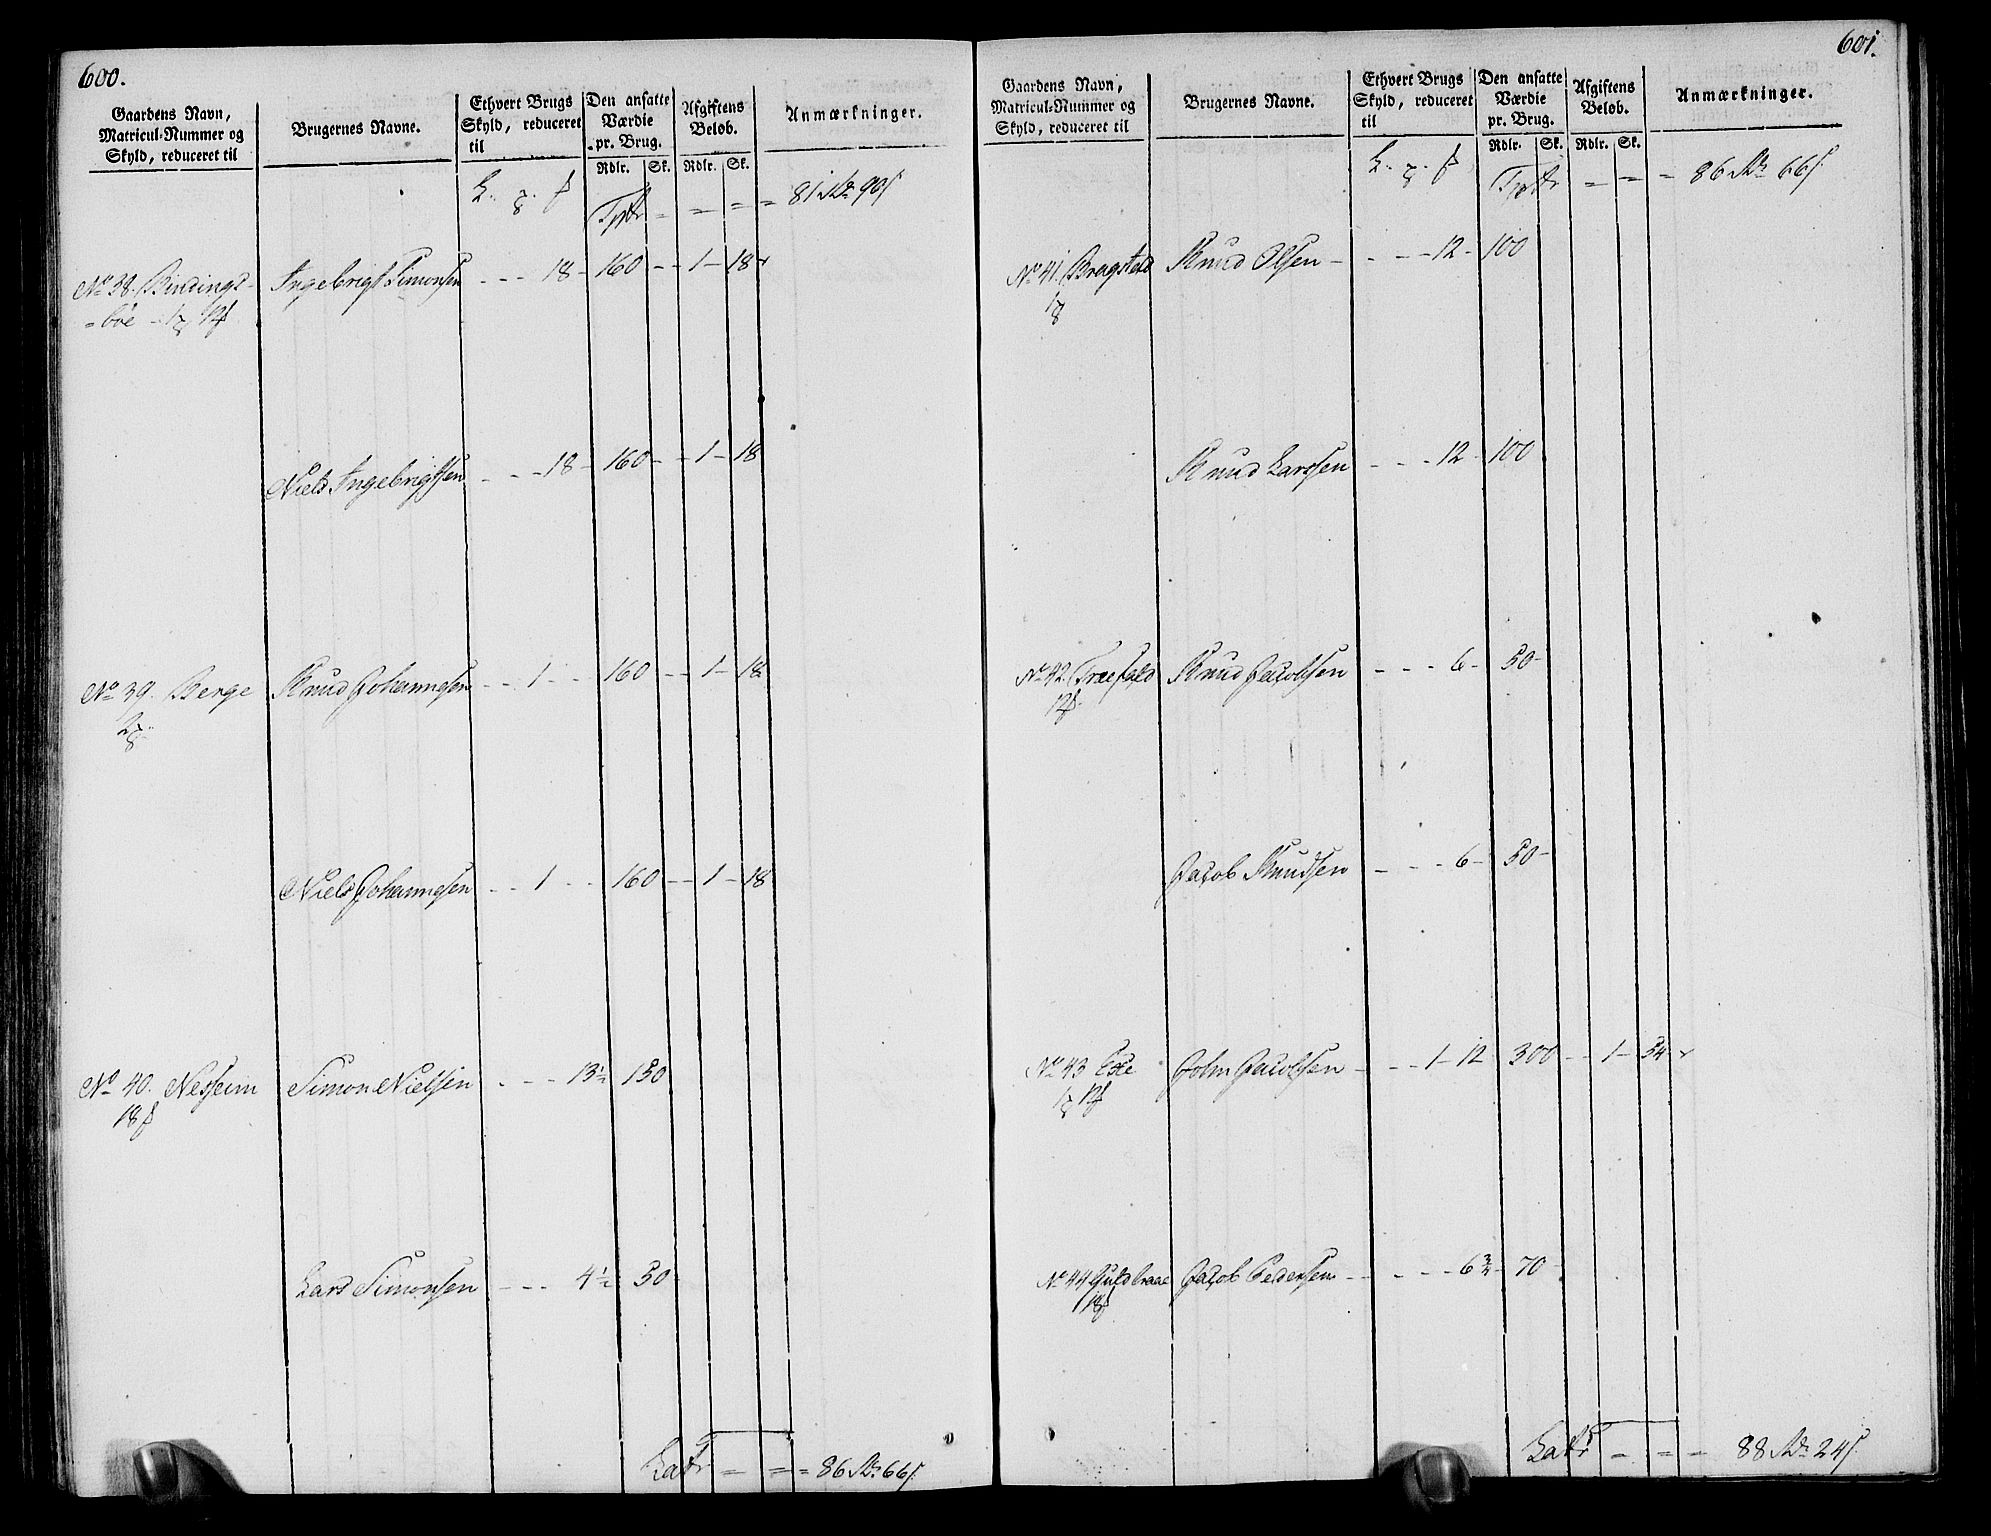 600.
Gaardens Navn,
Matricul-Nummer og
Skyld, reduceret til
Brugernes Navne.
Ethvert Brugs
Skyld, reduceret
til
Den ansatte
Værdie
pr. Brug.
Rdlr. Sk.
Afgiftens
Beløb.
Rdlr. Sk.
Anmærkninger.
81 Rdr 90 s
No 38. Bindings- Ingebrigt Simonsen - - 18 - 160 - - 1 - 18
=bøe - 1
Niels Ingebrigtsen - - - 18 - 160 - - 1 - 18
No 39. Berge Knud Johannesen - - 1 - - 160 - - 1 - 18
2
Niels Johannesen - - 1 - - 160 - - 1 - 18
No 40. Nesheim Simon Nielsen - - - 13½ 150
18
Lars Simonsen - - - 4½ 50
Latr = = = 86 Rdr 66 s
601.
Gaardens Navn,
Matricul-Nummer og
Skyld, reduceret til
Brugernes Navne.
Ethvert Brugs
Skyld, reduceret
til
Den ansatte
Værdie
pr. Brug.
Rdlr. Sk.
Afgiftens
Beløb.
Rdlr. Sk.
Anmærkninger.
86 Rdr 66 s
No 41. Bragstad Knud Olsen - - - - 12 - 100
1
Knud Larssen - - - 12 - 100
No 42. Træfald Knud Jacobsen - - - 6 - 50 -
12
Jacob Knudsen - - - 6 - 50 -
No 43 Eße John Jacobsen - - - 1 - 12 300 - - 1 - 54
1 12
No 44 Guldbraae Jacob Pedersen - - - - - 6¾ - 70 -
18
Latr = = = 88 Rdr 24 s